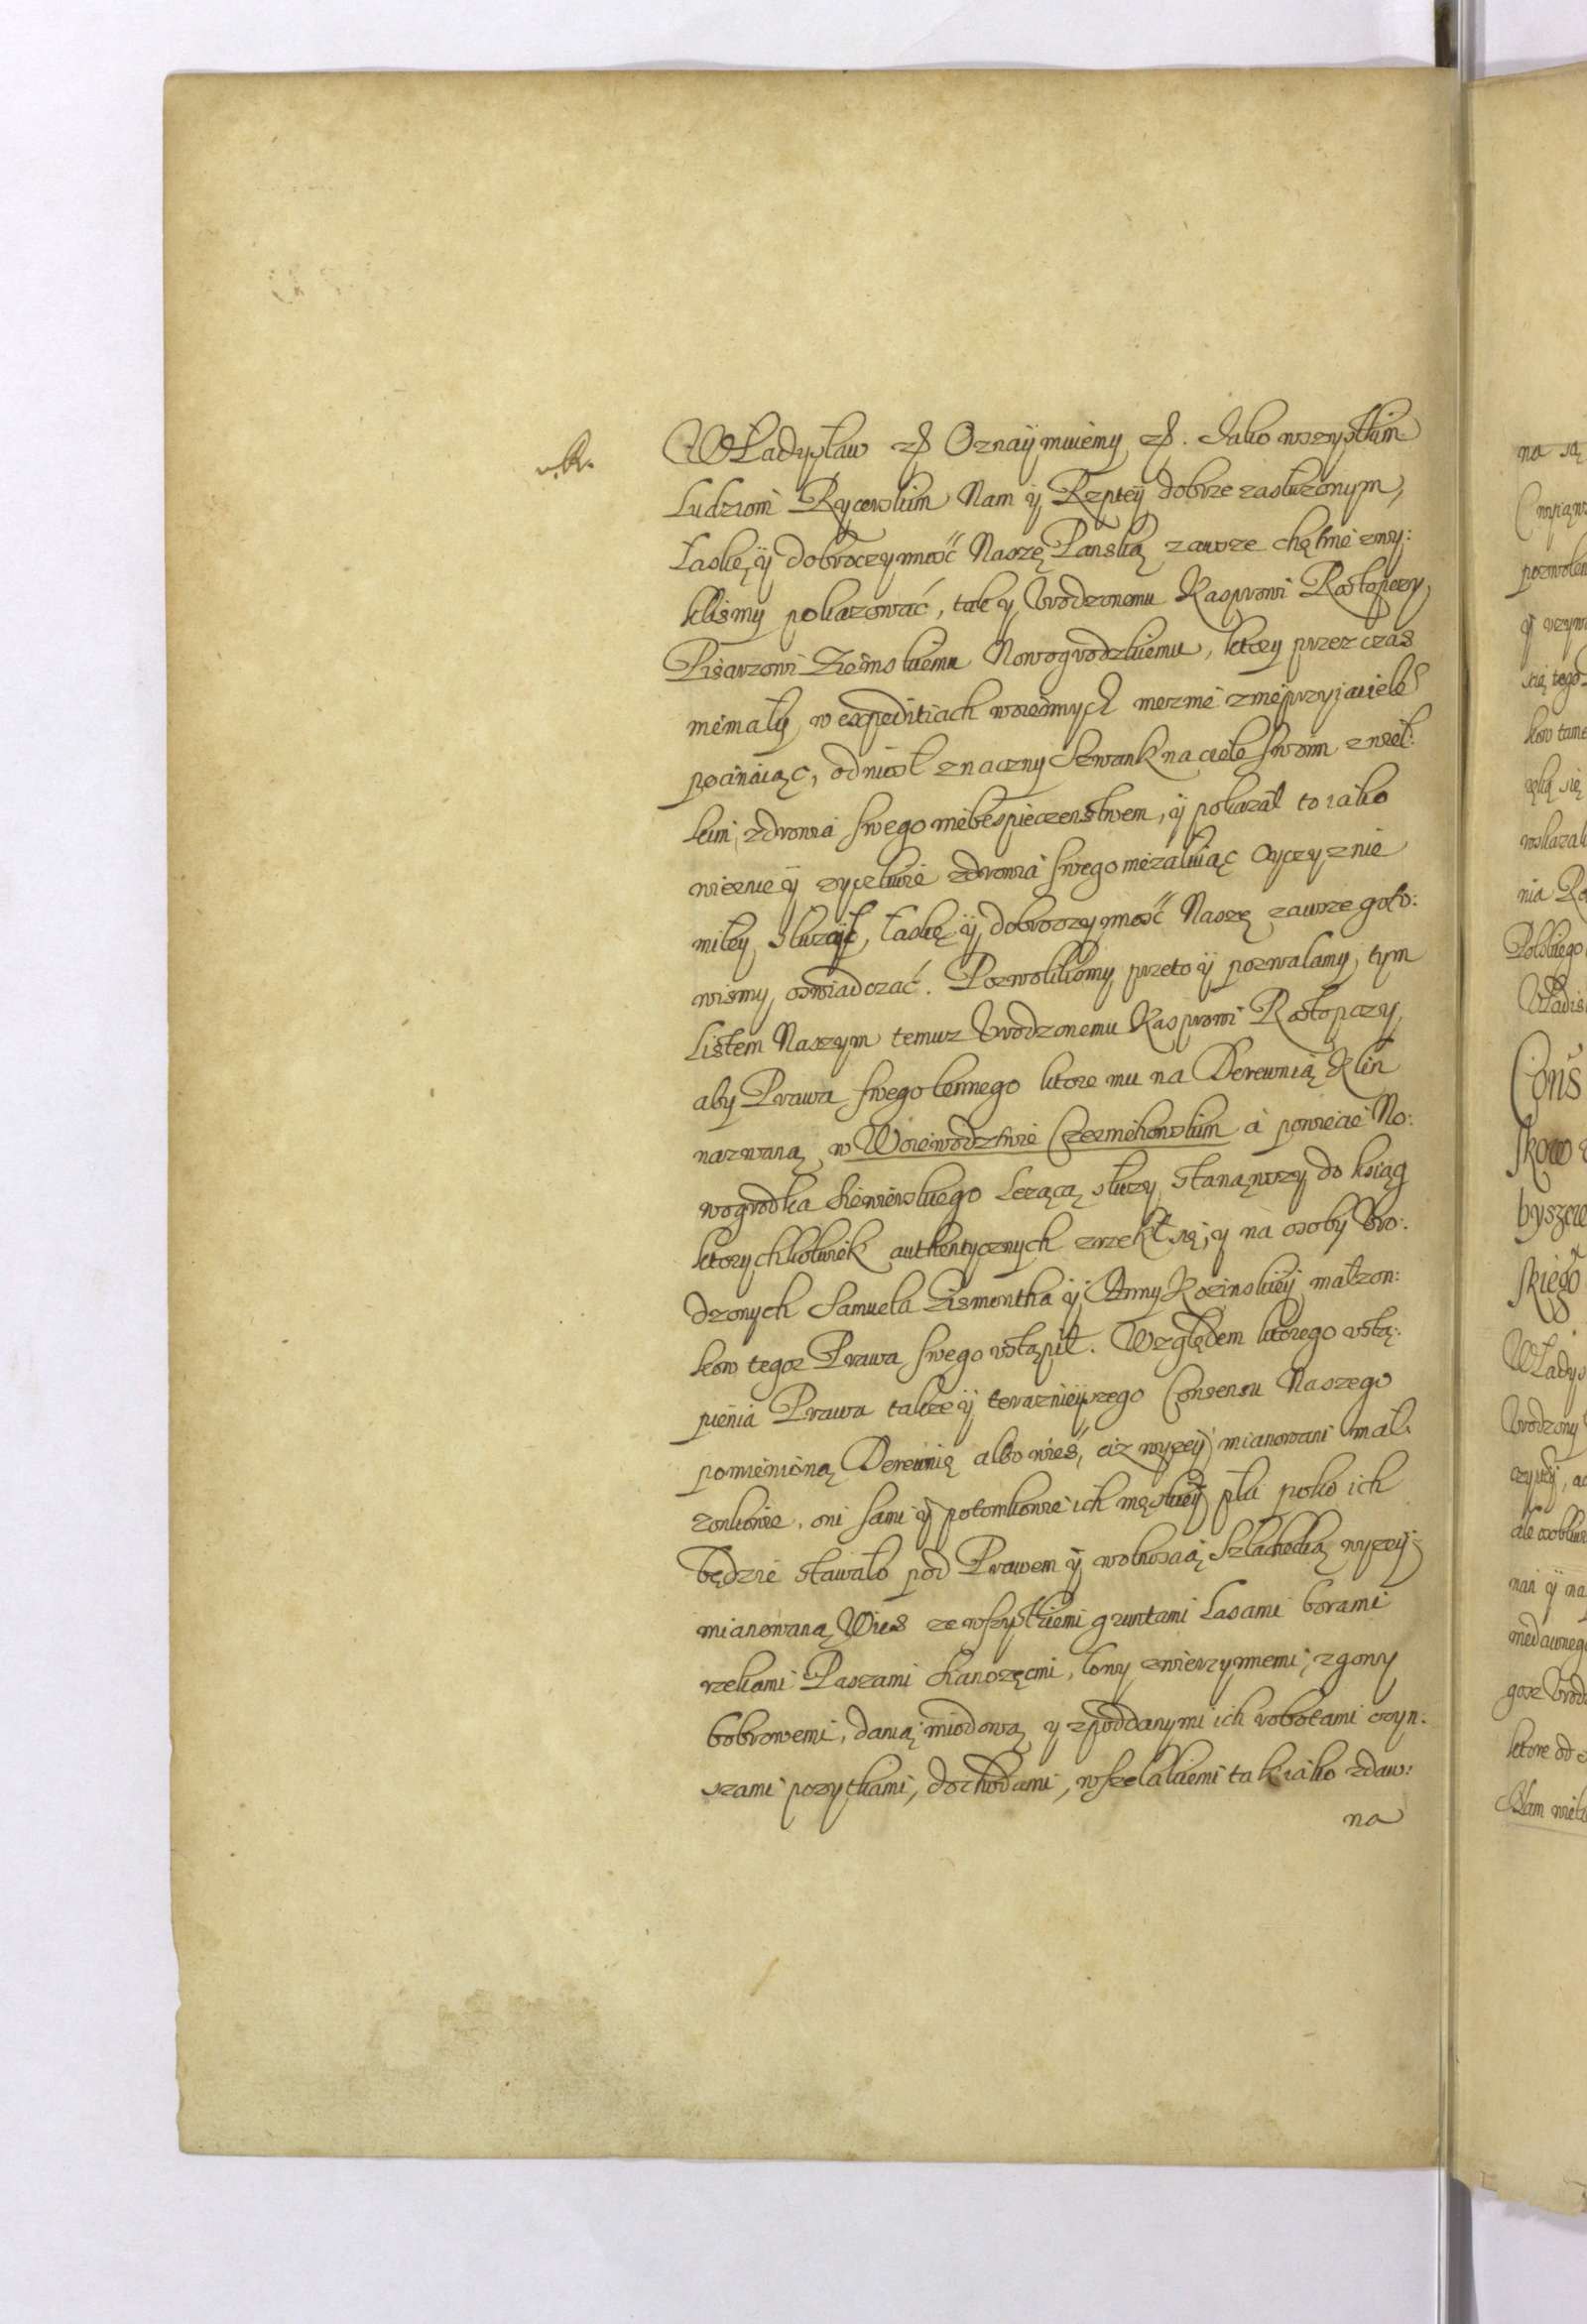 Władysław etc Oznaÿmuiemy etc. Iako wszystkim
Ludziom Rycerskim Nam ÿ Rzptey dobrze zasłużonym,
Łaskę ÿ dobroczynność Naszę Panską zawsze chętnie zwy:
klismy pokazować, tak y Vrodzonemu Kasprowi Rostopczy
Pisarzowi Ziemskiemu Nowogrodzkiemu, ktory przez czas
niemały w expeditiach woiennych meznie z nieprzyiacielem
poczinaiąc, odniosł znaczny Szwank na ciele swoim z wiel:
kim zdrowia swego niebespieczenstwem, ÿ pokazał to iako
wiernie ÿ zyczliwie zdrowia swego nieżałuiąc Oyczyznie
miłey służył, Łaskę ÿ dobroczynność Naszę zawsze goto:
wismy oswiadczać. Pozwolilismy przeto ÿ pozwalamy tym
Listem Naszym temuz Vrodzonemu Kasprowi Rostopczy,
aby Prawa swego lennego ktore mu na Derewnią Klin
nazwaną w Woiewodztwie Czerniehowskim a powiecie No:
wogrodka Siewierskiego Leżącą służy stanąwszy do ksiąg
ktorychkolwiek authentycznych zrzekł się, y na osoby Vro:
dzonych Samuela Zismontha ÿ Anny Kozinskieÿ małzon:
kow tegoz Prawa swego vstąpił. Względem ktorego vstą:
pienia Prawa także ÿ teraznieÿszego Consensu Naszego
pomienioną Derewnię albo wieś, ciz wyzeÿ mianowani mał:
zonkowie, oni sami ÿ potomkowie ich męskieÿ płci poko ich
będzie stawało pod Prawem ÿ wolnoscią Szlachecką wyzeÿ
mianowaną Wies ze wszystkiemi gruntami Lasami borami
rzekami Paszami Sianożęcmi, łowy zwierzynnemi, zgony
bobrowemi, danią miodową y z poddanymi ich robotami czyn:
szami pozytkami, dochodami, wszelakiemi tak iako zdaw:
na